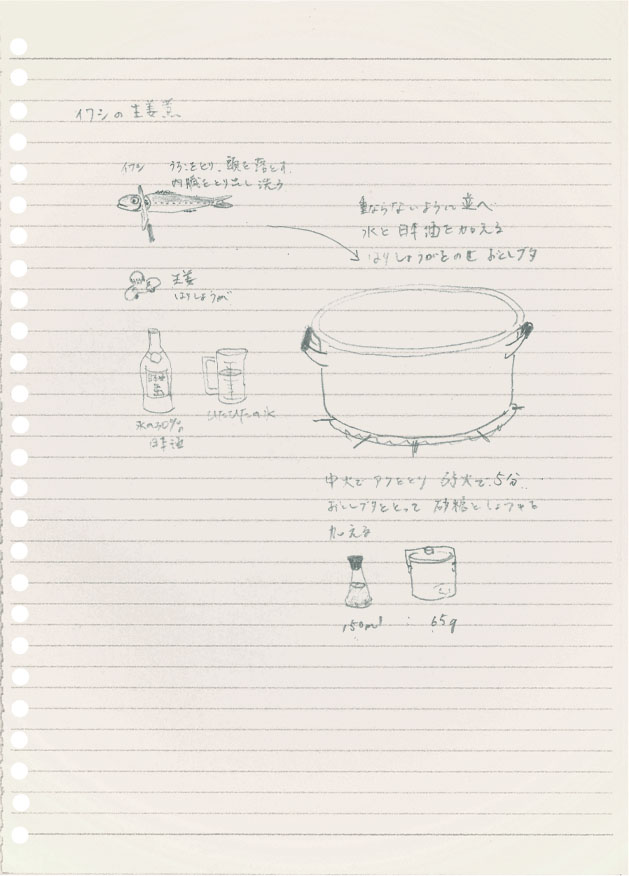 イワシの生姜煮
イワシ うろこをとり、頭を落とす、
内臓をとり出し洗う
重ならないように並べ
水と日本酒を加える
はりしょうがをのせ おとしブタ
生姜
はりしょうが
ひたひたの水
水の30%の
日本酒
中火でアクをとり 弱火で5分
おとしブタをとって 砂糖としょうゆを
加える
150ml : 65g